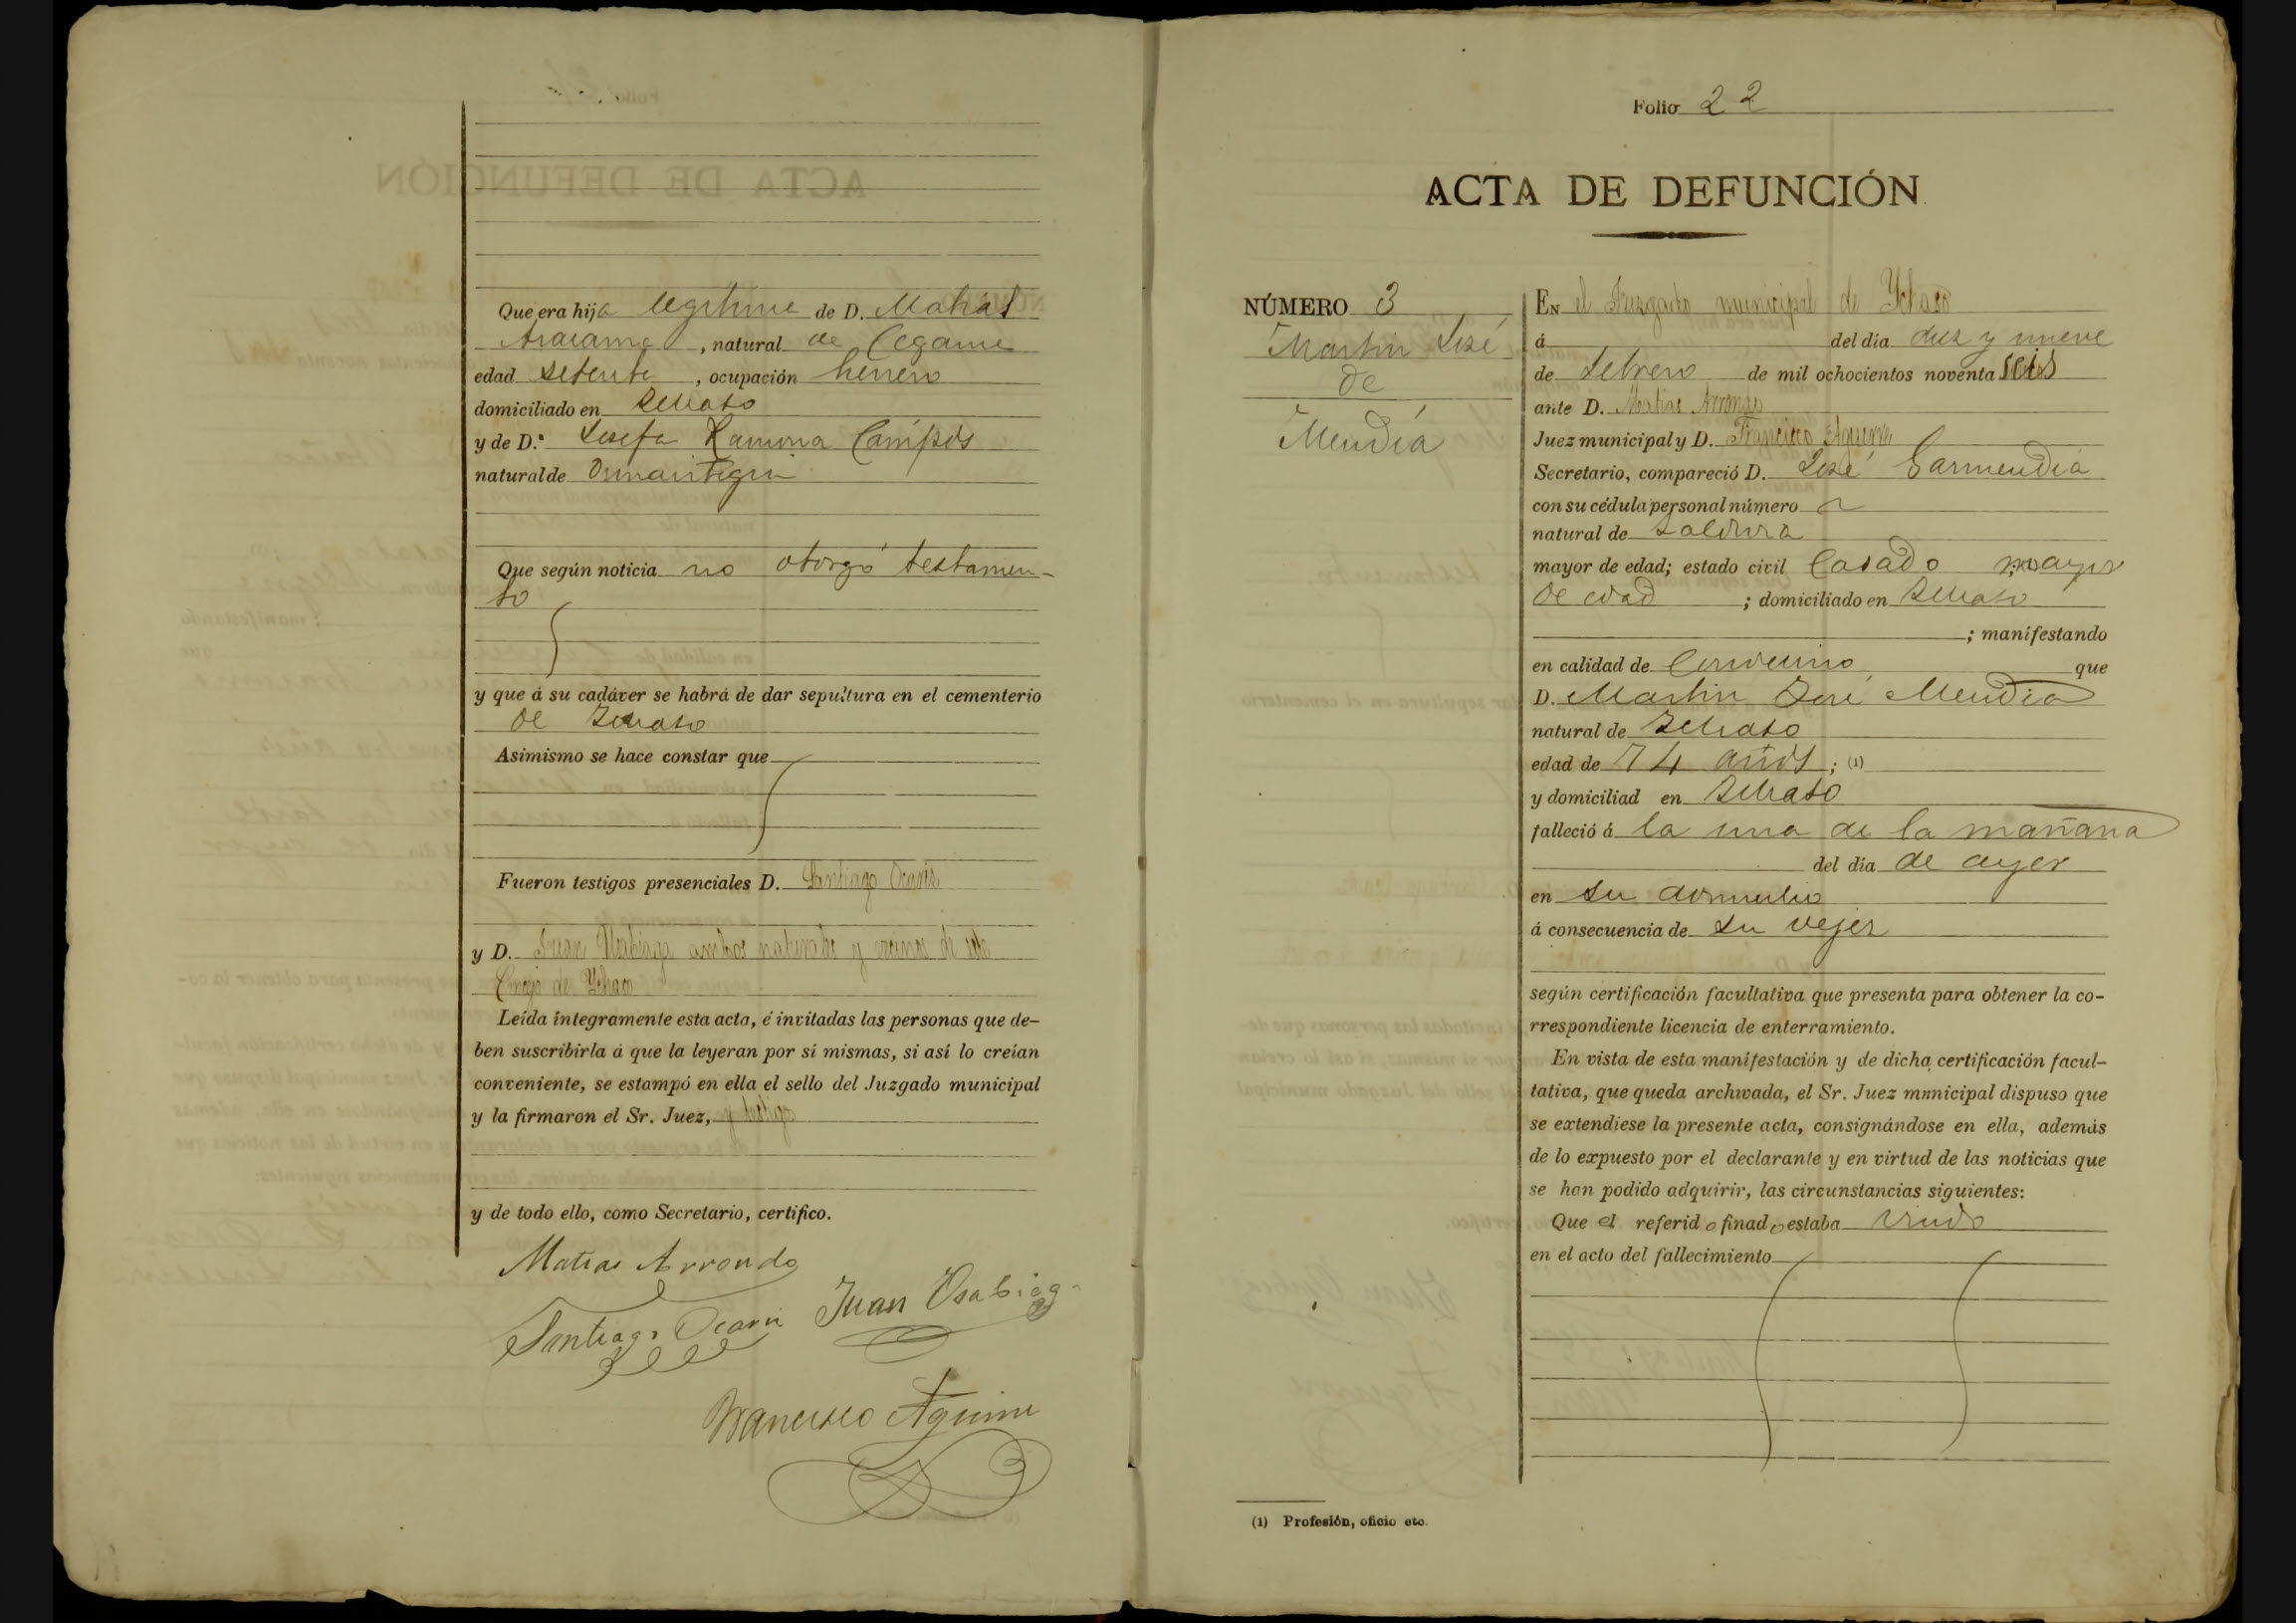 Que era hija legitima de D. Matias
Aracama, natural de Cegama
edad setenta, ocupación herrero
domiciliado en Ichaso
y de D.ª Josefa Ramona Campos
natural de Ormaiztegui
Que según noticia no otorgó testamen-
to
y que á su cadáver se habrá de dar sepultura en el cementerio
de Ichaso
Asimismo se hace constar que
Fueron testigos presenciales D. Santiago Ocariz
y D. Juan Usabiaga ambos naturales y vecinos de este
Concejo de Ychaso
Leída íntegramente esta acta, é invitadas las personas que de-
ben suscribirla á que la leyeran por sí mismas, si así lo creían
conveniente, se estampó en ella el sello del Juzgado municipal
y la firmaron el Sr. Juez, y testigos
y de todo ello, como Secretario, certifico.
Matias Arrondo
Santiago Ocariz Juan Usabiaga
Francisco Aguirre
Folio 22
ACTA DE DEFUNCIÓN
NÚMERO 3
Martin José
de
Mendía
En el Juzgado municipal de Ychaso
á del dia diez y nueve
de Febrero de mil ochocientos noventa seis
ante D. Matias Arrondo
Juez municipal y D. Francisco Aguirre
Secretario, compareció D. José Garmendia
con su cédula personal número
natural de Zaldivia
mayor de edad; estado civil Casado mayor
de edad; domiciliado en Ichaso
; manifestando
en calidad de Convecino que
D. Martin José Mendia
natural de Ichaso
edad de 74 años; (1)
y domiciliad en Ichaso
falleció á la una de la mañana
del dia de ayer
en su domicilio
á consecuencia de su vejez
según certificación facultativa que presenta para obtener la co-
rrespondiente licencia de enterramiento.
En vista de esta manifestación y de dicha certificación facul-
tativa, que queda archivada, el Sr. Juez municipal dispuso que
se extendiese la presente acta, consignándose en ella, además
de lo expuesto por el declarante y en virtud de las noticias que
se han podido adquirir, las circunstancias siguientes:
Que el referido finado estaba viudo
en el acto del fallecimiento
(1) Profesión, oficio etc.